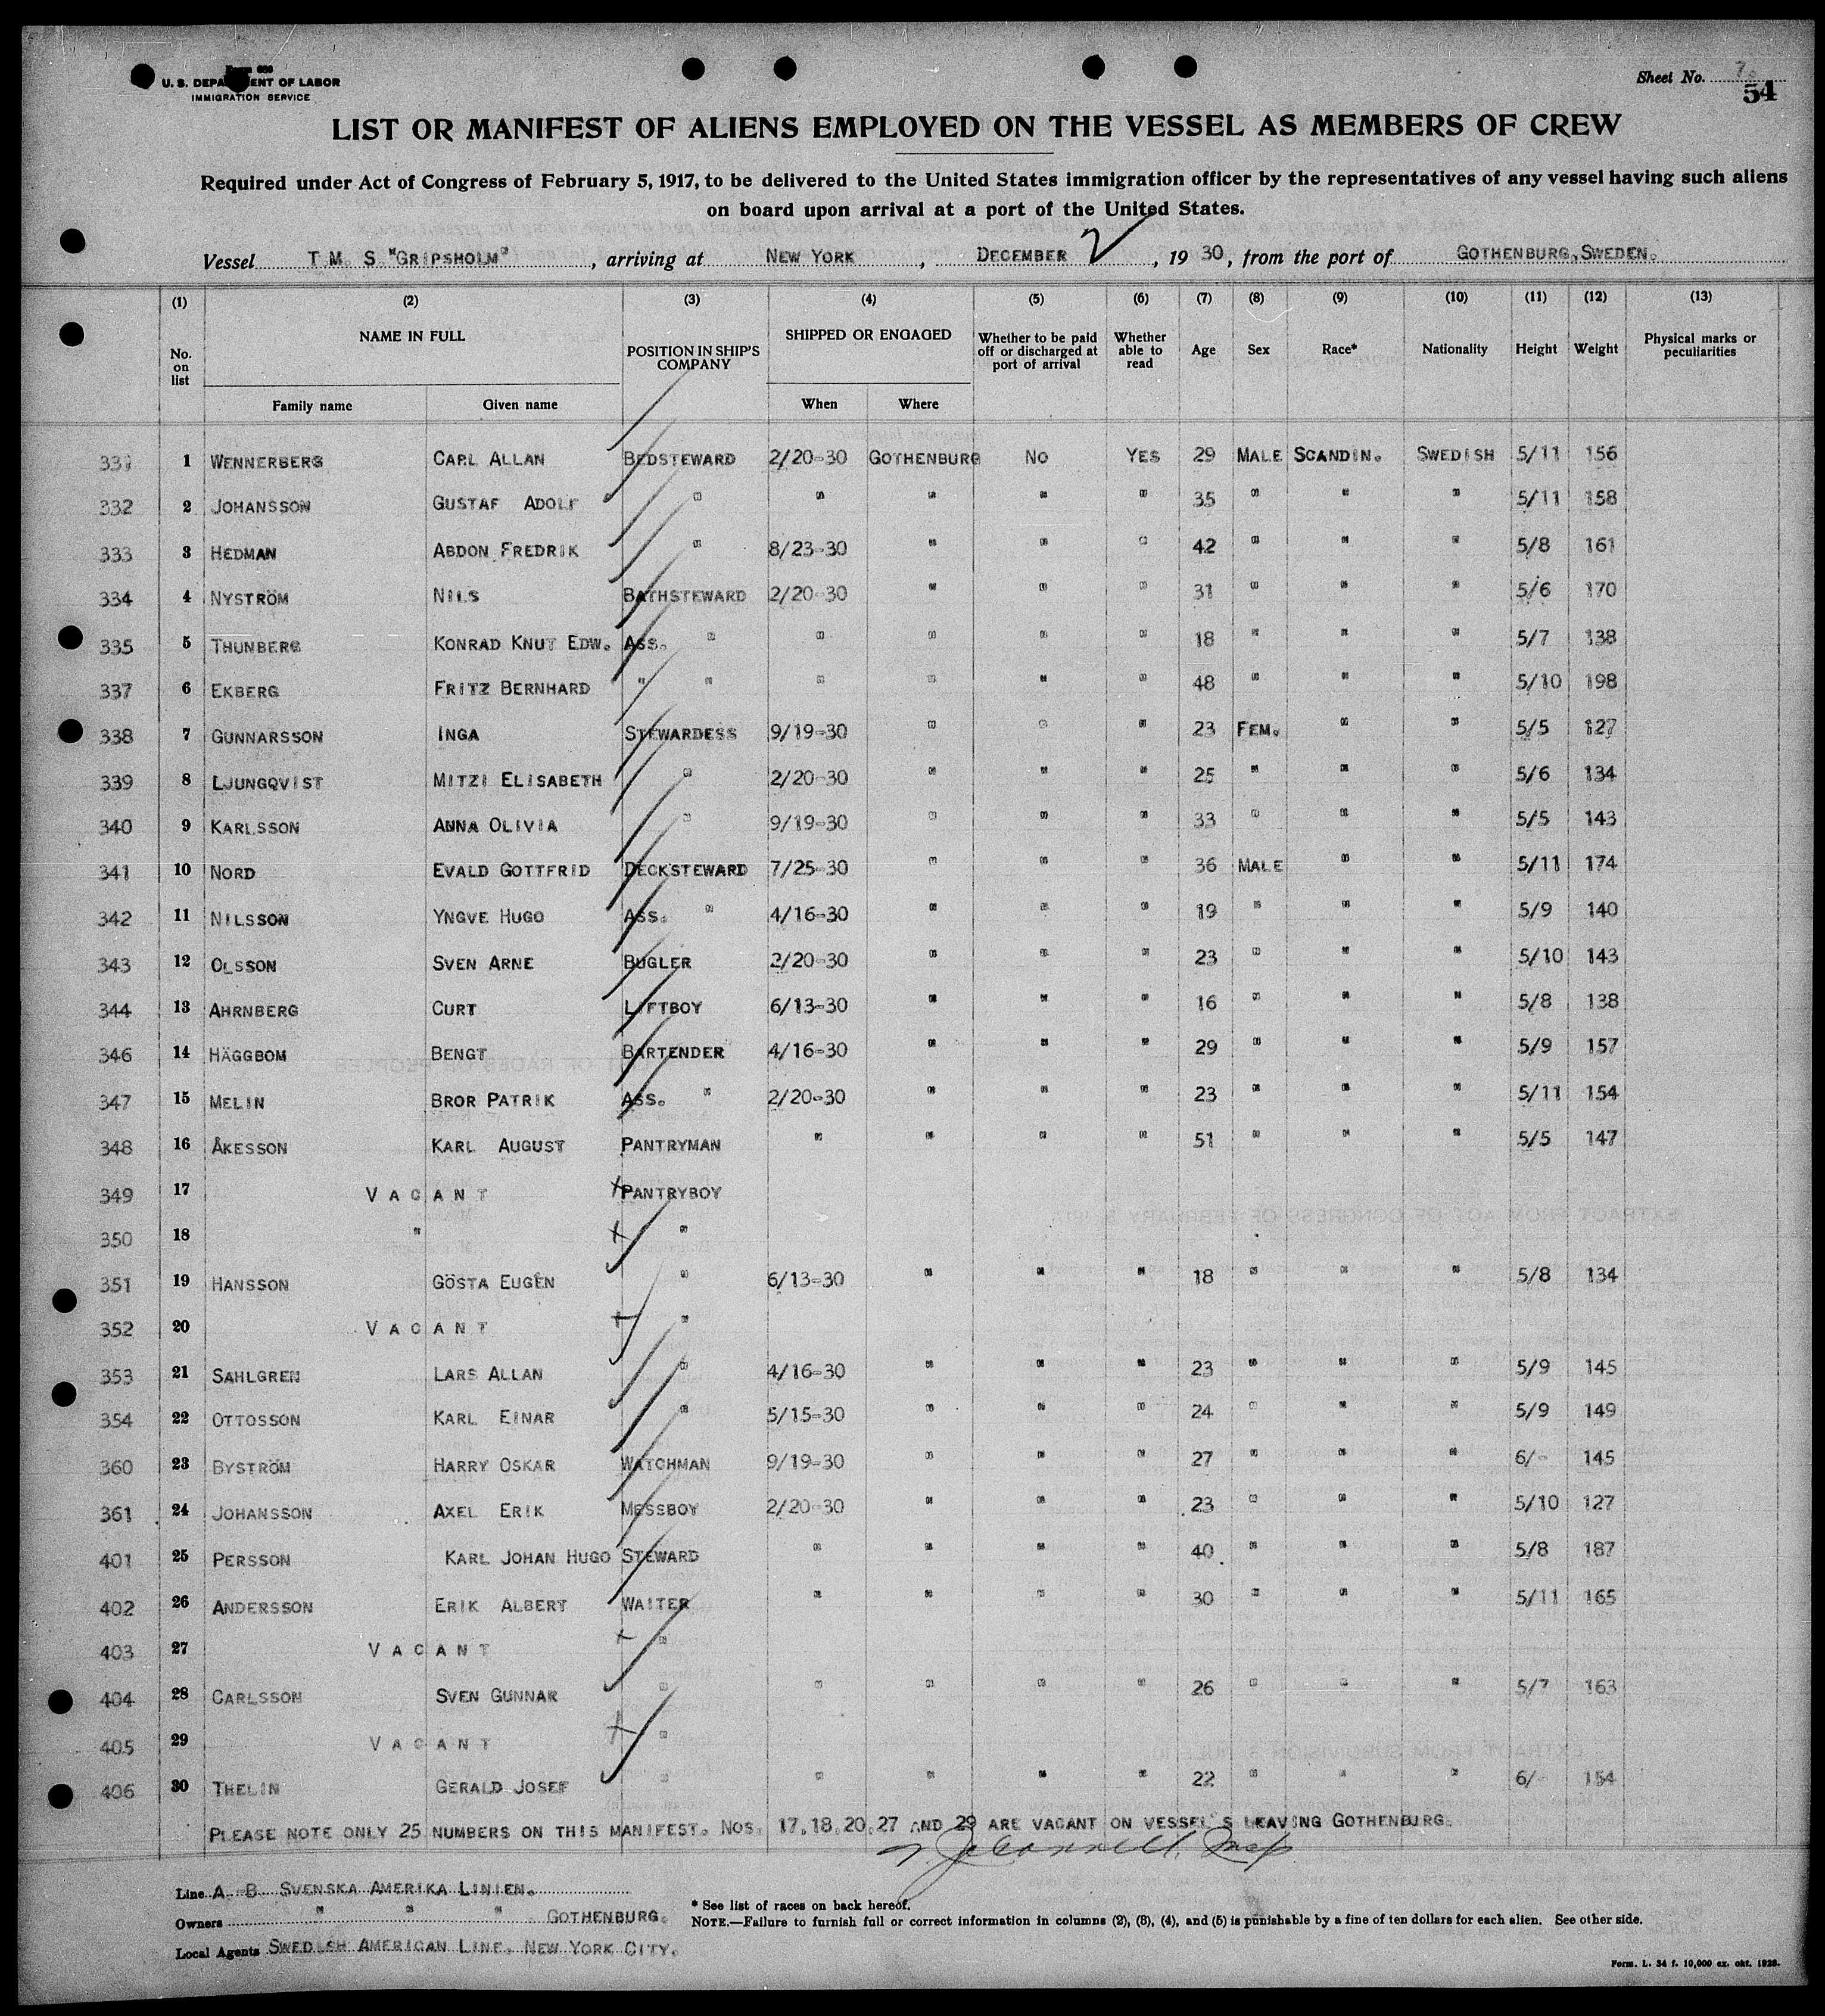 Form 680
U. S. DEPARTMENT OF LABOR
IMMIGRATION SERVICE
Sheet No. 7.
54
LIST OR MANIFEST OF ALIENS EMPLOYED ON THE VESSEL AS MEMBERS OF CREW
Required under Act of Congress of February 5, 1917, to be delivered to the United States immigration officer by the representatives of any vessel having such aliens
on board upon arrival at a port of the United States.
Vessel T. M. S. "GRIPSHOLM", arriving at NEW YORK, DECEMBER 2, 1930, from the port of GOTHENBURG, SWEDEN.
(1) (2) (3) (4) (5) (6) (7) (8) (9) (10) (11) (12) (13)
No. on list NAME IN FULL Family name Given name POSITION IN SHIP'S COMPANY SHIPPED OR ENGAGED When Where Whether to be paid off or discharged at port of arrival Whether able to read Age Sex Race* Nationality Height Weight Physical marks or peculiarities
331 1 WENNERBERG CARL ALLAN BEDSTEWARD 2/20-30 GOTHENBURG NO YES 29 MALE SCANDIN. SWEDISH 5/11 156
332 2 JOHANSSON GUSTAF ADOLF " " " " " 35 " " " 5/11 158
333 3 HEDMAN ABDON FREDRIK " 8/23-30 " " " 42 " " " 5/8 161
334 4 NYSTRÖM NILS BATHSTEWARD 2/20-30 " " " 31 " " " 5/6 170
335 5 THUNBERG KONRAD KNUT EDW. ASS. " " " " " 18 " " " 5/7 138
337 6 EKBERG FRITZ BERNHARD " " " " " " 48 " " " 5/10 198
338 7 GUNNARSSON INGA STEWARDESS 9/19-30 " " " 23 FEM. " " 5/5 127
339 8 LJUNGQVIST MITZI ELISABETH " 2/20-30 " " " 25 " " " 5/6 134
340 9 KARLSSON ANNA OLIVIA " 9/19-30 " " " 33 " " " 5/5 143
341 10 NORD EVALD GOTTFRID DECKSTEWARD 7/25-30 " " " 36 MALE " " 5/11 174
342 11 NILSSON YNGVE HUGO ASS. " 4/16-30 " " " 19 " " " 5/9 140
343 12 OLSSON SVEN ARNE BUGLER 2/20-30 " " " 23 " " " 5/10 143
344 13 AHRNBERG CURT LIFTBOY 6/13-30 " " " 16 " " " 5/8 138
346 14 HÄGGBOM BENGT BARTENDER 4/16-30 " " " 29 " " " 5/9 157
347 15 MELIN BROR PATRIK ASS. " 2/20-30 " " " 23 " " " 5/11 154
348 16 ÅKESSON KARL AUGUST PANTRYMAN " " " " 51 " " " 5/5 147
349 17 VACANT PANTRYBOY
350 18 " "
351 19 HANSSON GÖSTA EUGÊN " 6/13-30 " " " 18 " " " 5/8 134
352 20 VACANT "
353 21 SAHLGREN LARS ALLAN " 4/16-30 " " " 23 " " " 5/9 145
354 22 OTTOSSON KARL EINAR " 5/15-30 " " " 24 " " " 5/9 149
360 23 BYSTRÖM HARRY OSKAR WATCHMAN 9/19-30 " " " 27 " " " 6/- 145
361 24 JOHANSSON AXEL ERIK MESSBOY 2/20-30 " " " 23 " " " 5/10 127
401 25 PERSSON KARL JOHAN HUGO STEWARD " " " " 40 " " " 5/8 187
402 26 ANDERSSON ERIK ALBERT WAITER " " " " 30 " " " 5/11 165
403 27 VACANT "
404 28 CARLSSON SVEN GUNNAR " " " " " 26 " " " 5/7 163
405 29 VACANT "
406 30 THELIN GERALD JOSEF " " " " " 22 " " " 6/- 154
PLEASE NOTE ONLY 25 NUMBERS ON THIS MANIFEST. NOS. 17, 18, 20, 27 AND 29 ARE VACANT ON VESSEL'S LEAVING GOTHENBURG.
Line A. B. SVENSKA AMERIKA LINIEN.
Owners " " " GOTHENBURG.
Local Agents SWEDISH AMERICAN LINE. NEW YORK CITY.
* See list of races on back hereof.
NOTE.—Failure to furnish full or correct information in columns (2), (3), (4), and (5) is punishable by a fine of ten dollars for each alien. See other side.
Form. L. 34 f. 10,000 ex. okt. 1928.